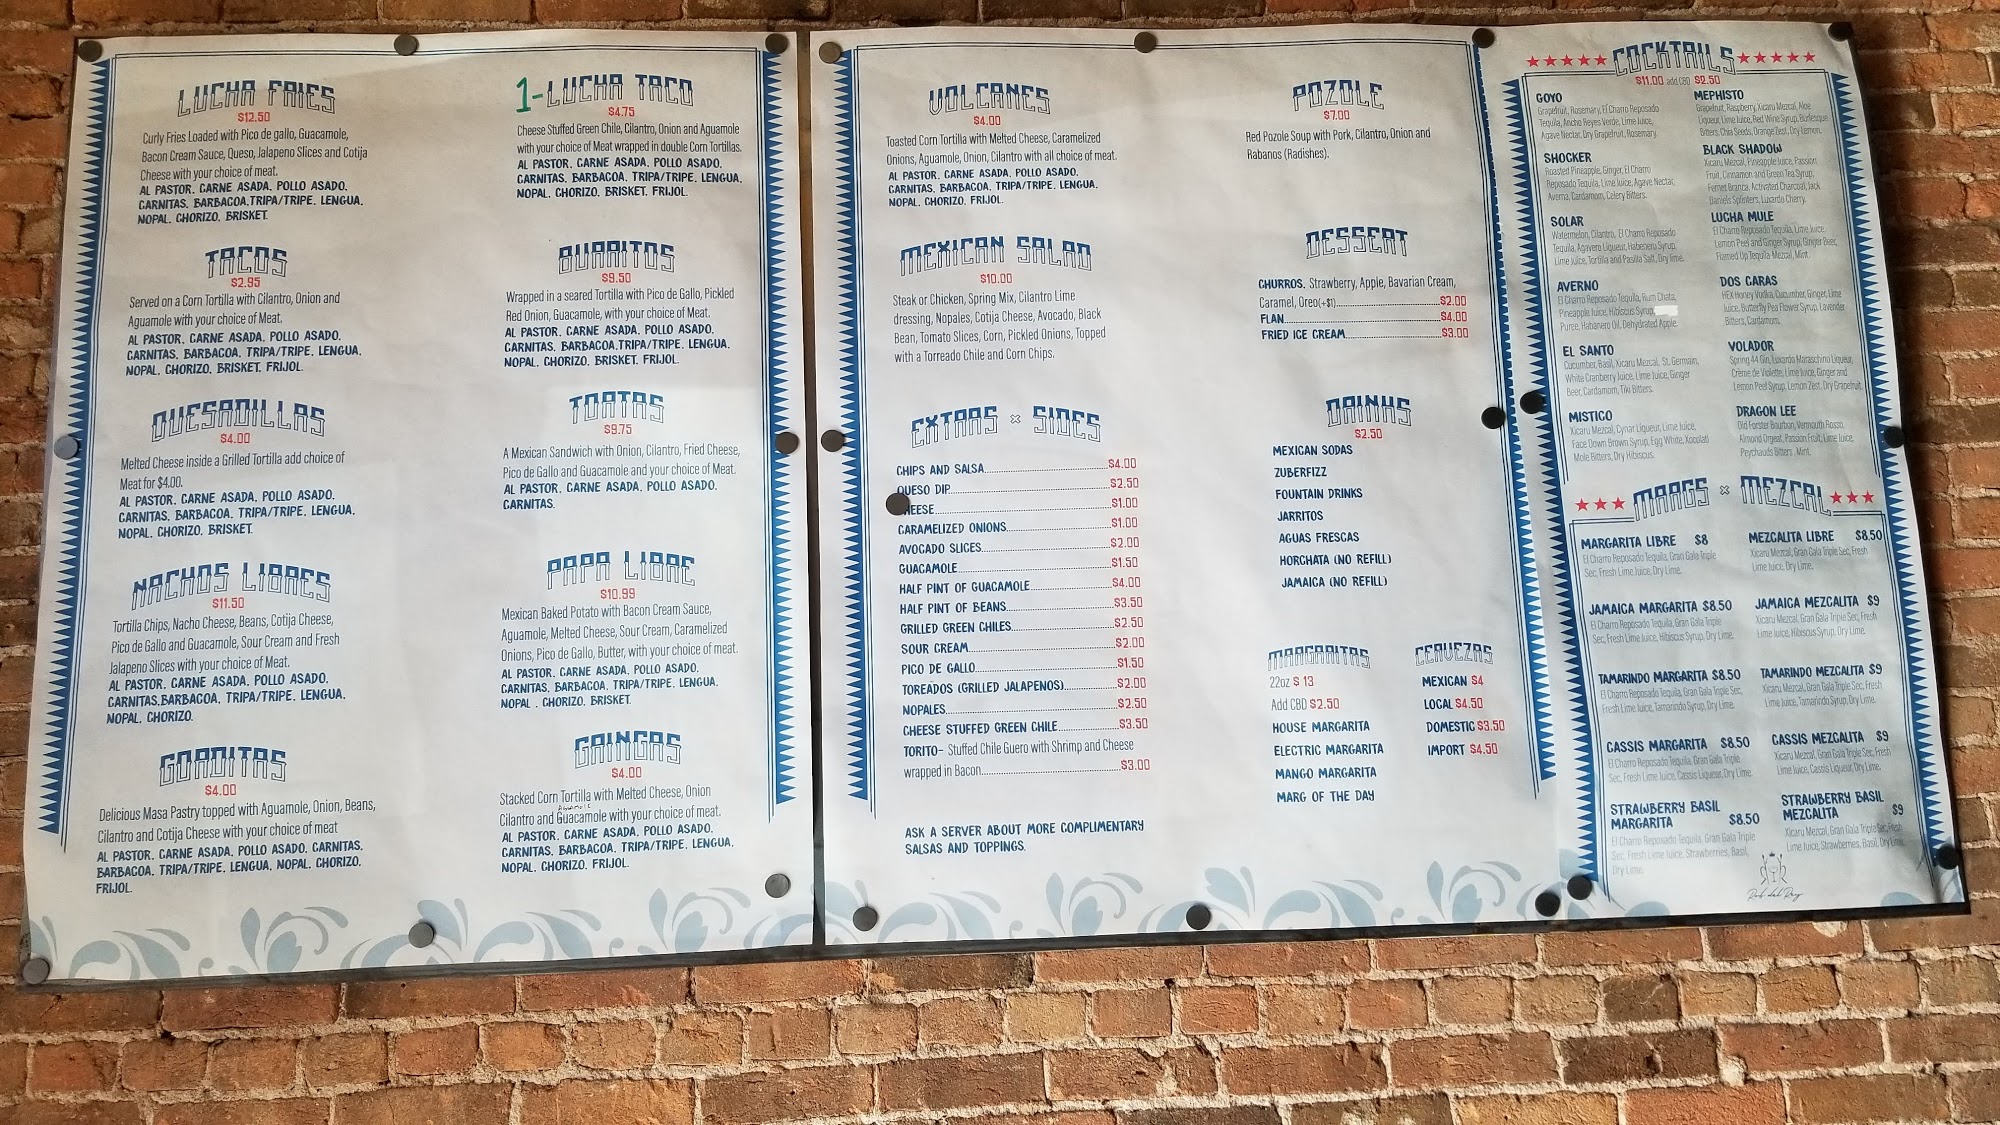 LUCHA FRIES
$12.50
Curly Fries Loaded with Pico de gallo, Guacamole,
Bacon Cream Sauce, Queso, Jalapeno Slices and Cotija
Cheese with your choice of meat.
AL PASTOR, CARNE ASADA, POLLO ASADO,
CARNITAS, BARBACOA, TRIPA/TRIPE, LENGUA,
NOPAL, CHORIZO, BRISKET.
TACOS
$2.95
Served on a Corn Tortilla with Cilantro, Onion and
Aguamole with your choice of Meat.
AL PASTOR, CARNE ASADA, POLLO ASADO,
CARNITAS, BARBACOA, TRIPA/TRIPE, LENGUA,
NOPAL, CHORIZO, BRISKET, FRIJOL.
QUESADILLAS
$4.00
Melted Cheese inside a Grilled Tortilla add choice of
Meat for $4.00.
AL PASTOR, CARNE ASADA, POLLO ASADO,
CARNITAS, BARBACOA, TRIPA/TRIPE, LENGUA,
NOPAL, CHORIZO, BRISKET.
NACHOS LIBRES
$11.50
Tortilla Chips, Nacho Cheese, Beans, Cotija Cheese,
Pico de Gallo and Guacamole, Sour Cream and Fresh
Jalapeno Slices with your choice of Meat.
AL PASTOR, CARNE ASADA, POLLO ASADO,
CARNITAS,BARBACOA, TRIPA/TRIPE, LENGUA,
NOPAL, CHORIZO.
GORDITAS
$4.00
Delicious Masa Pastry topped with Aguamole, Onion, Beans,
Cilantro and Cotija Cheese with your choice of meat
AL PASTOR, CARNE ASADA, POLLO ASADO, CARNITAS,
BARBACOA, TRIPA/TRIPE, LENGUA, NOPAL, CHORIZO,
FRIJOL.
1- LUCHA TACO
$4.75
Cheese Stuffed Green Chile, Cilantro, Onion and Aguamole
with your choice of Meat wrapped in double Corn Tortillas.
AL PASTOR, CARNE ASADA, POLLO ASADO,
CARNITAS, BARBACOA, TRIPA/TRIPE, LENGUA,
NOPAL, CHORIZO, BRISKET, FRIJOL.
BURRITOS
$9.50
Wrapped in a seared Tortilla with Pico de Gallo, Pickled
Red Onion, Guacamole, with your choice of Meat.
AL PASTOR, CARNE ASADA, POLLO ASADO,
CARNITAS, BARBACOA, TRIPA/TRIPE, LENGUA,
NOPAL, CHORIZO, BRISKET, FRIJOL.
TORTAS
$9.75
A Mexican Sandwich with Onion, Cilantro, Fried Cheese,
Pico de Gallo and Guacamole and your choice of Meat.
AL PASTOR, CARNE ASADA, POLLO ASADO,
CARNITAS.
PAPA LIBRE
$10.99
Mexican Baked Potato with Bacon Cream Sauce,
Aguamole, Melted Cheese, Sour Cream, Caramelized
Onions, Pico de Gallo, Butter, with your choice of meat.
AL PASTOR, CARNE ASADA, POLLO ASADO,
CARNITAS, BARBACOA, TRIPA/TRIPE, LENGUA,
NOPAL , CHORIZO, BRISKET.
GRINGAS
$4.00
Stacked Corn Tortilla with Melted Cheese, Onion
Aguamole
Cilantro and Guacamole with your choice of meat.
AL PASTOR, CARNE ASADA, POLLO ASADO,
CARNITAS, BARBACOA, TRIPA/TRIPE, LENGUA,
NOPAL, CHORIZO, FRIJOL.
VOLCANES
$4.00
Toasted Corn Tortilla with Melted Cheese, Caramelized
Onions, Aguamole, Onion, Cilantro with all choice of meat.
AL PASTOR, CARNE ASADA, POLLO ASADO,
CARNITAS, BARBACOA, TRIPA/TRIPE, LENGUA,
NOPAL, CHORIZO, FRIJOL.
MEXICAN SALAD
$10.00
Steak or Chicken, Spring Mix, Cilantro Lime
dressing, Nopales, Cotija Cheese, Avocado, Black
Bean, Tomato Slices, Corn, Pickled Onions, Topped
with a Torreado Chile and Corn Chips.
EXTRAS x SIDES
CHIPS AND SALSA $4.00
QUESO DIP $2.50
CHEESE $1.00
CARAMELIZED ONIONS $1.00
AVOCADO SLICES $2.00
GUACAMOLE $1.50
HALF PINT OF GUACAMOLE $4.00
HALF PINT OF BEANS $3.50
GRILLED GREEN CHILES $2.50
SOUR CREAM $2.00
PICO DE GALLO $1.50
TOREADOS (GRILLED JALAPENOS) $2.00
NOPALES $2.50
CHEESE STUFFED GREEN CHILE $3.50
TORITO- Stuffed Chile Guero with Shrimp and Cheese
wrapped in Bacon $3.00
ASK A SERVER ABOUT MORE COMPLIMENTARY
SALSAS AND TOPPINGS.
POZOLE
$7.00
Red Pozole Soup with Pork, Cilantro, Onion and
Rabanos (Radishes).
DESSERT
CHURROS, Strawberry, Apple, Bavarian Cream,
Caramel, Oreo(+$1) $2.00
FLAN $4.00
FRIED ICE CREAM $3.00
DRINKS
$2.50
MEXICAN SODAS
ZUBERFIZZ
FOUNTAIN DRINKS
JARRITOS
AGUAS FRESCAS
HORCHATA (NO REFILL)
JAMAICA (NO REFILL)
MARGARITAS
22oz $ 13
Add CBD $2.50
HOUSE MARGARITA
ELECTRIC MARGARITA
MANGO MARGARITA
MARG OF THE DAY
CERVEZAS
MEXICAN $4
LOCAL $4.50
DOMESTIC $3.50
IMPORT $4.50
COCKTAILS
$11.00 add CBD $2.50
GOYO
Grapefruit, Rosemary, El Charro Reposado
Tequila, Ancho Reyes Verde, Lime Juice,
Agave Nectar, Dry Grapefruit, Rosemary.
SHOCKER
Roasted Pineapple, Ginger, El Charro
Reposado Tequila, Lime Juice, Agave Nectar,
Averna, Cardamom, Celery Bitters.
SOLAR
Watermelon, Cilantro, El Charro Reposado
Tequila, Agavero Liqueur, Habenero Syrup,
Lime Juice, Tortilla and Pasilla Salt, Dry lime.
AVERNO
El Charro Reposado Tequila, Rum Chata,
Pineapple Juice, Hibiscus Syrup,
Puree, Habanero Oil, Dehydrated Apple.
EL SANTO
Cucumber, Basil, Xicaru Mezcal, St. Germain,
White Cranberry Juice, Lime Juice, Ginger
Beer, Cardamom, Tiki Bitters.
MISTICO
Xicaru Mezcal, Cynar Liqueur, Lime Juice,
Face Down Brown Syrup, Egg White, Xocolatl
Mole Bitters, Dry Hibiscus.
MEPHISTO
Grapefruit, Raspberry, Xicaru Mezcal, Aloe
Liqueur, Lime Juice, Red Wine Syrup, Burlesque
Bitters, Chia Seeds, Orange Zest, Dry Lemon.
BLACK SHADOW
Xicaru Mezcal, Pineapple Juice, Passion
Fruit, Cinnamon and Green Tea Syrup,
Fernet Branca, Activated Charcoal, Jack
Daniels Splinters, Luxardo Cherry.
LUCHA MULE
El Charro Reposado Tequila, Lime Juice,
Lemon Peel and Ginger Syrup, Ginger Beer,
Flamed Up Tequila-Mezcal, Mint.
DOS CARAS
HEX Honey Vodka, Cucumber, Ginger, Lime
Juice, Butterfly Pea Flower Syrup, Lavender
Bitters, Cardamom.
VOLADOR
Spring 44 Gin, Luxardo Maraschino Liqueur,
Crème de Violette, Lime Juice, Ginger and
Lemon Peel Syrup, Lemon Zest, Dry Grapefruit.
DRAGON LEE
Old Forster Bourbon, Vermouth Rosso,
Almond Orgeat, Passion Fruit, Lime Juice,
Peychauds Bitters , Mint.
MARGS x MEZCAL
MARGARITA LIBRE $8
El Charro Reposado Tequila, Gran Gala Triple
Sec, Fresh Lime Juice, Dry Lime.
JAMAICA MARGARITA $8.50
El Charro Reposado Tequila, Gran Gala Triple
Sec, Fresh Lime Juice, Hibiscus Syrup, Dry Lime.
TAMARINDO MARGARITA $8.50
El Charro Reposado Tequila, Gran Gala Triple Sec,
Fresh Lime Juice, Tamarindo Syrup, Dry Lime.
CASSIS MARGARITA $8.50
El Charro Reposado Tequila, Gran Gala Triple
Sec, Fresh Lime Juice, Cassis Liqueur, Dry Lime.
STRAWBERRY BASIL
MARGARITA $8.50
El Charro Reposado Tequila, Gran Gala Triple
Sec, Fresh Lime Juice, Strawberries, Basil,
Dry Lime.
MEZCALITA LIBRE $8.50
Xicaru Mezcal, Gran Gala Triple Sec, Fresh
Lime Juice, Dry Lime.
JAMAICA MEZCALITA $9
Xicaru Mezcal, Gran Gala Triple Sec, Fresh
Lime Juice, Hibiscus Syrup, Dry Lime.
TAMARINDO MEZCALITA $9
Xicaru Mezcal, Gran Gala Triple Sec, Fresh
Lime Juice, Tamarindo Syrup, Dry Lime.
CASSIS MEZCALITA $9
Xicaru Mezcal, Gran Gala Triple Sec, Fresh
Lime Juice, Cassis Liqueur, Dry Lime.
STRAWBERRY BASIL
MEZCALITA $9
Xicaru Mezcal, Gran Gala Triple Sec, Fresh
Lime Juice, Strawberries, Basil, Dry Lime.